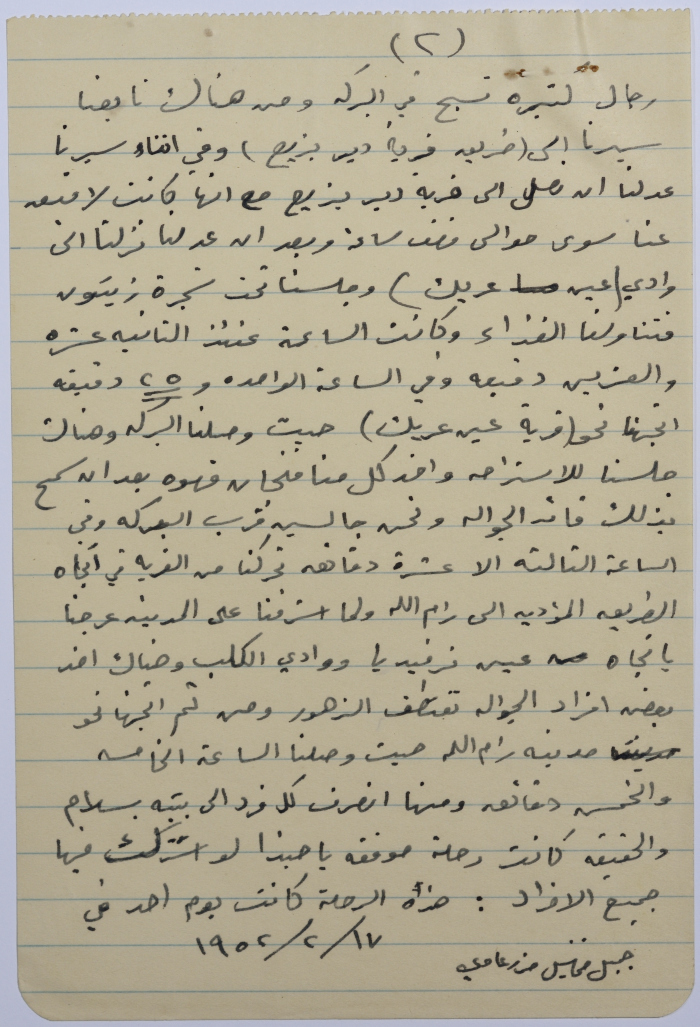 (٢)
رجال كثيرة تسبح في البركه ومن هناك تابعنا
سيرنا الى (طريق قرية دير بزيع) وفي اثناء سيرنا
عدلنا ان نصل الى قرية دير بزيع مع انها كانت لا تبعد
عنا سوى حوالى نصف ساعة وبعد ان عدلنا نزلنا الى
وادي (عين عريك) وجلسنا تحت شجرة زيتون
فتناولنا الغذاء وكانت الساعة عندئذ الثانيه عشره
والعشرين دقيقه وفي الساعة الواحده و ٢٥ دقيقه
اتجهنا نحو (قرية عين عريك) حيث وصلنا البركه وهناك
جلسنا للاستراحه واخذ كل منا فنجان قهوه بعد ان سمح
بذلك قائد الجواله ونحن جالسين قرب البركه وفي
الساعة الثالثه الا عشرة دقائق تحركنا من القريه في اتجاه
الطريق المؤديه الى رام الله ولما اشرفنا على المدينه عرجنا
باتجاه عين ترفيديا ووادي الكلب وهناك اخذ
بعض افراد الجواله تقتطف الزهور ومن ثم اتجهنا نحو
مدينه رام الله حيث وصلنا الساعة الخامسه
والخمس دقائق ومنها انصرف كل فرد الى بيته بسلام
والحقيقه كانت رحلة موفقه يا حبذا لو اشتركت فيها
جميع الافراد : هذه الرحلة كانت يوم احد في
١٧/٢/١٩٥٢
جميل